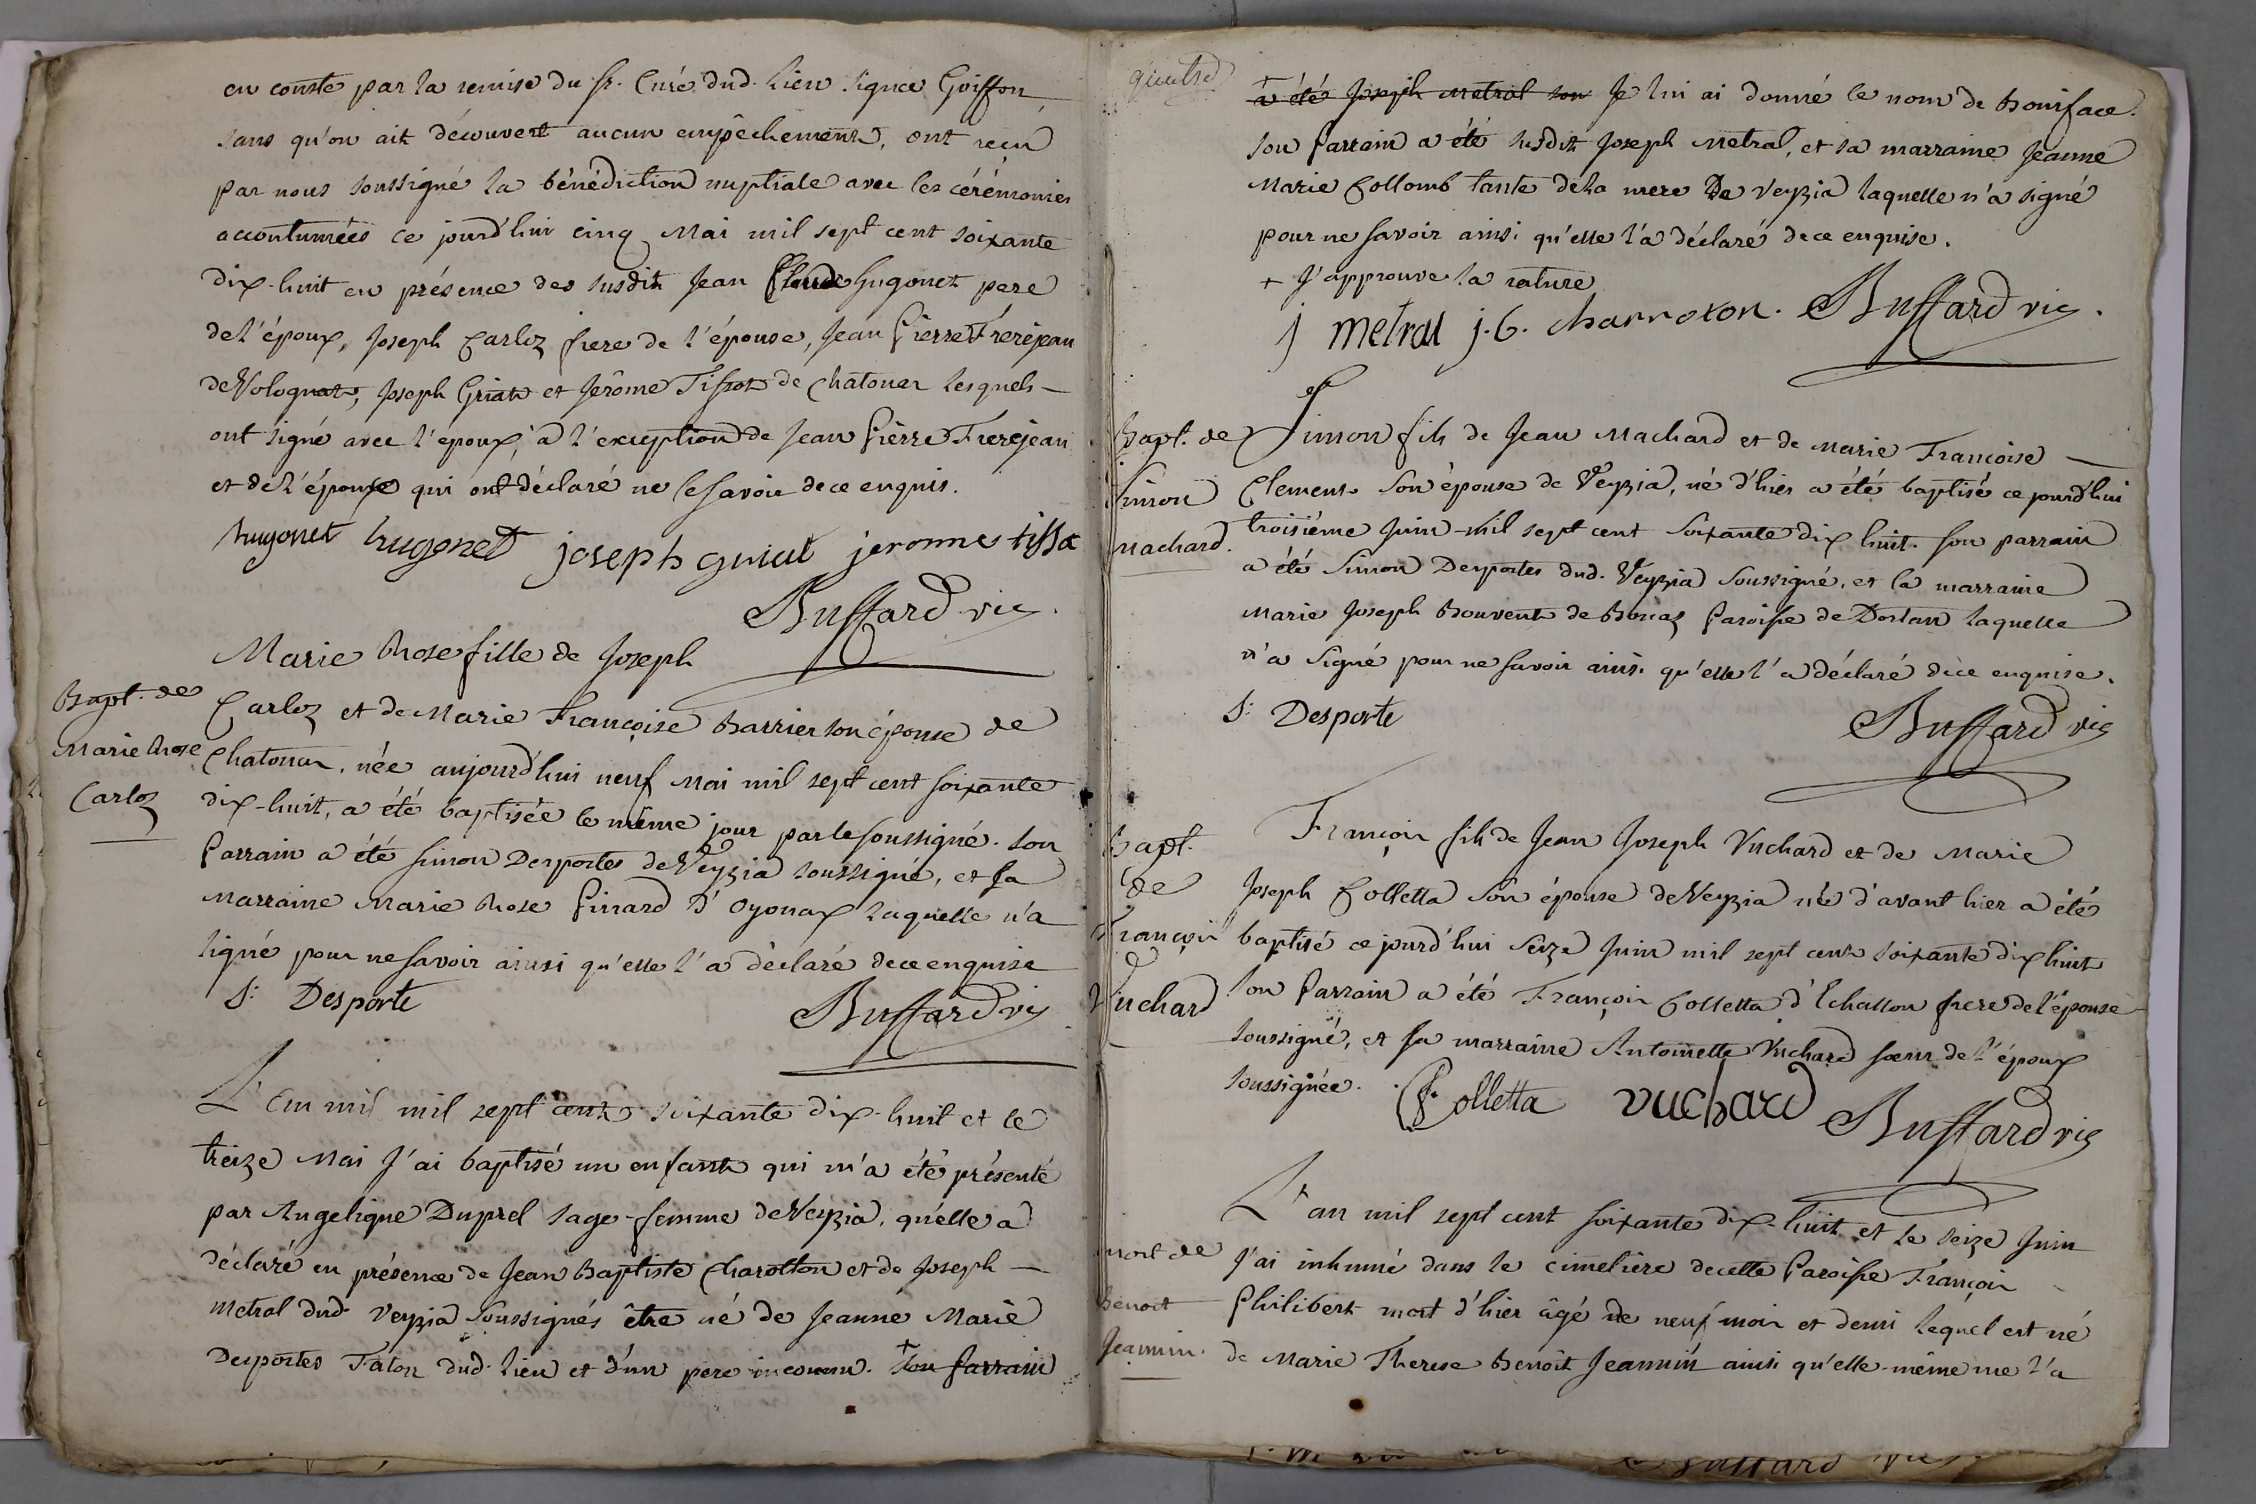 en conste par la remise du Sr. Curé dud. lieu signée Goiffon
sans qu'on ait découvert aucun empêchement, ont reçu
par nous soussigné la bénédiction nuptiale avec les cérémonies
accoutumées ce jourd'hui cinq Mai mil sept cent soixante
dix-huit en présence des susdits Jean Claude Hugonet pere
de l'époux, Joseph Carloz frere de l'épouse, Jean Pierre Frerejean
de Volognat, Joseph Griat et Jerôme Tissot de Chatonar lesquels
ont signé avec l'époux, à l'exception de Jean Pierre Frerejean
et de l'épouse qui ont déclaré ne le savoir de ce enquis.
hugonet hugonet joseph guiat jeronne tissot
Buffard vic.
Bapt. de
Marie Rose
Carloz
Marie Rose fille de Joseph
Carloz et de Marie Françoise Barrier son épouse de
Chatonar, née aujourd'hui neuf Mai mil sept cent soixante
dix-huit, a été baptisée le même jour par le soussigné. Son
Parrain a été Simon Desportes de Veyzia soussigné, et sa
Marraine Marie Rose Pinard d'Oyonax laquelle n'a
signé pour ne savoir ainsi qu'elle l'a déclaré de ce enquise
S: Desporte
Buffard vic
L'an mil mil sept cent soixante dix-huit et le
treize Mai J'ai baptisé un enfant qui m'a été présenté
par Angelique Duprel sage-femme de Veyzia, qu'elle a
déclaré en présence de Jean Baptiste Charotton et de Joseph
Metral dud. Veyzia soussignés être né de Jeanne Marie
Desportes Taton dud. lieu et d'un pere inconnu. + Son Parrain
+ a été Joseph Metral son Je lui ai donné le nom de Boniface.
son Parrain a été susdit Joseph Metral, et sa marraine Jeanne
Marie Collomb tante de la mere De Veyzia laquelle n'a signé
pour ne savoir ainsi qu'elle l'a déclaré de ce enquise.
+ J'approuve la rature
j metral j. b. charroton. Buffard vic.
Bapt. de
Simon
Machard.
Simon fils de Jean Machard et de Marie Françoise
Clement son épouse de Veyzia, né d'hier a été baptisé ce jourd'hui
troisième Juin mil sept cent soixante dix huit. son parrain
a été Simon Desportes dud. Veyzia soussigné, et la marraine
Marie Joseph Bouvent de Bonaz Paroisse de Dortan laquelle
n'a signé pour ne savoir ainsi qu'elle l'a déclaré de ce enquise.
S: Desporte
Buffard vic
Bapt.
de
François
Vuchard
François fils de Jean Joseph Vuchard et de Marie
Joseph Colletta son épouse de Veyzia né d'avant hier a été
baptisé ce jourd'hui seize Juin mil sept cent soixante dix huit
son Parrain a été François Colletta d'Echallon frere de l'épouse
soussigné, et sa marraine Antoinette Vuchard soeur de l'époux
soussignée. f. Colletta vuchard Buffard vic
mort de
Benoit
Jeannin.
L'an mil sept cent soixante dix-huit et le seize Juin
J'ai inhumé dans le cimetière de cette Paroisse François
Philibert mort d'hier âgé de neuf mois et demi lequel est né
de Marie Therese Benoît Jeannin ainsi qu'elle-même me l'a